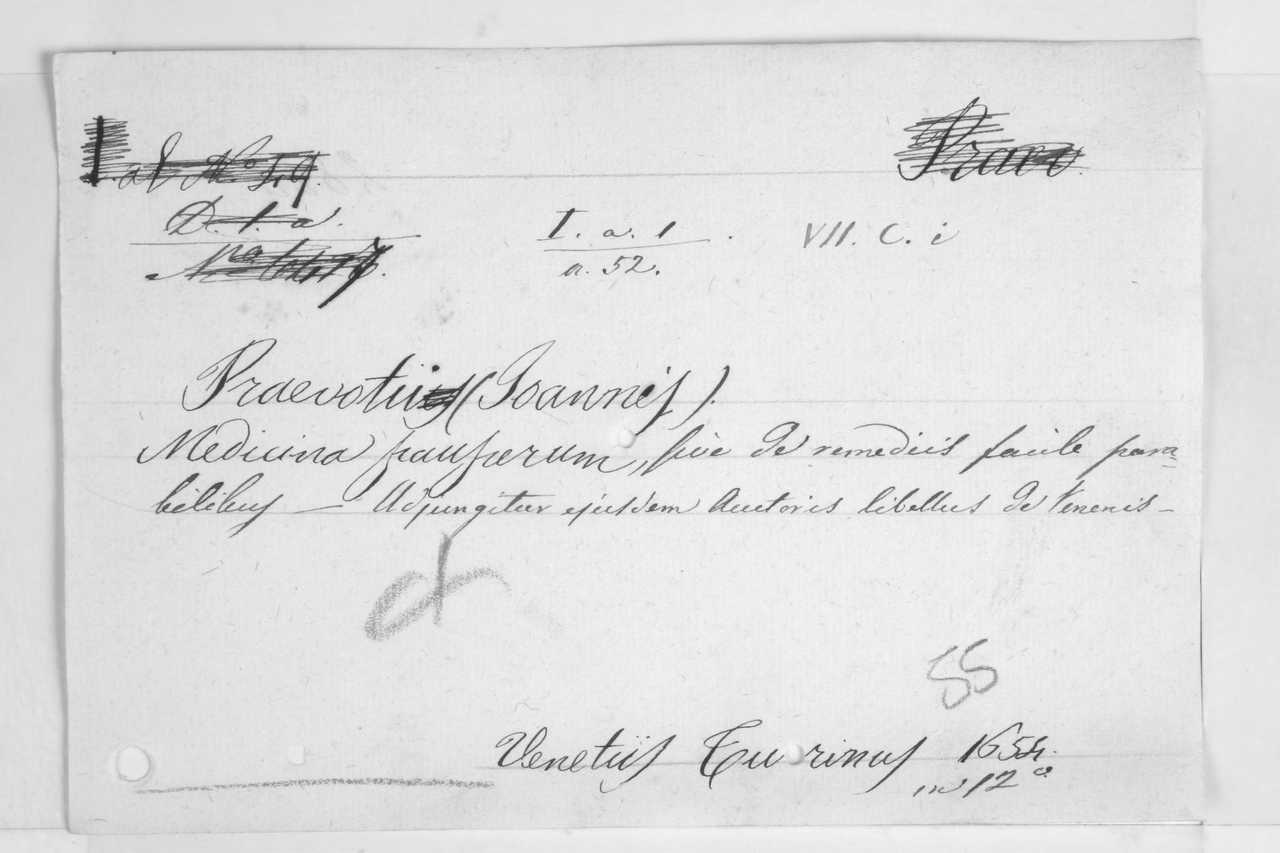 Praevo
D. 1. a.
I. a. 1. VII. C. i
n. 52.
Praevotii (Joannis).
Medicina pauperum, sive de remediis facile para-
bilibus — Adjungitur ejusdem Auctoris libellus de Venenis —
55
Venetiis Turrinus 1654.
in 12°